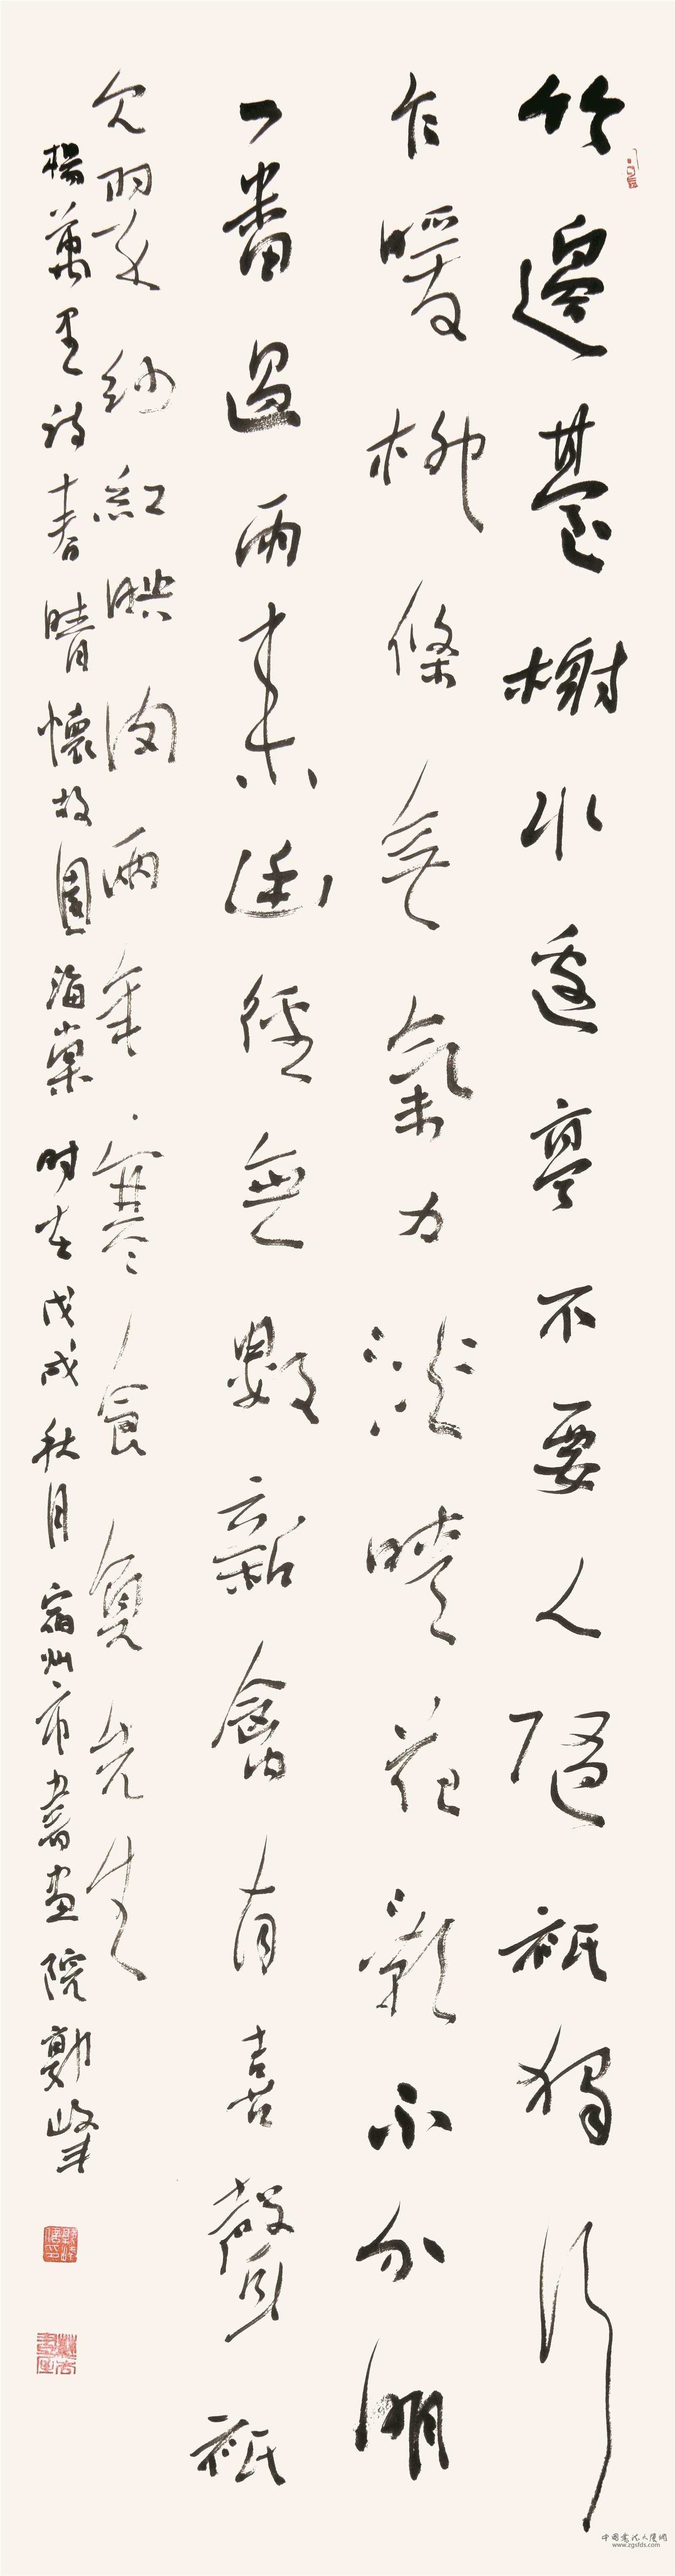 竹邊臺榭水邊亭不要人隨祇獨行
乍暖柳條無氣力淡晴花影不分明
一番過雨來幽徑無數新禽有喜聲祇
欠翠紗紅映肉兩年寒食負先生
楊萬里詩春晴懷故園海棠 时在戊戌秋月 宿州市書畫院 鄭峰
中国書法大厦網
www.zgsfds.com